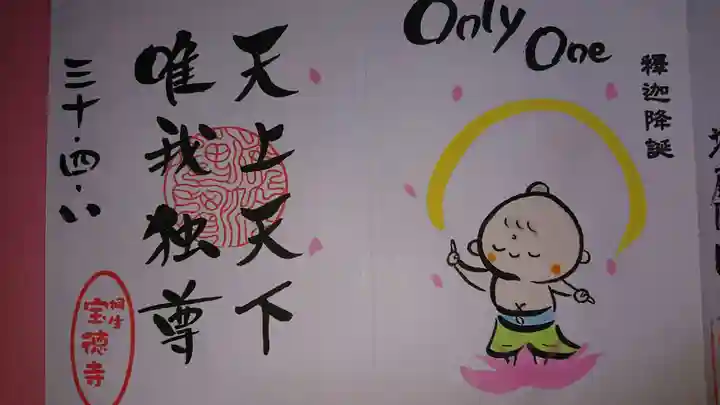 Only One
釋迦降誕
天上天下
唯我独尊
三十・四・八
桐生
宝徳寺